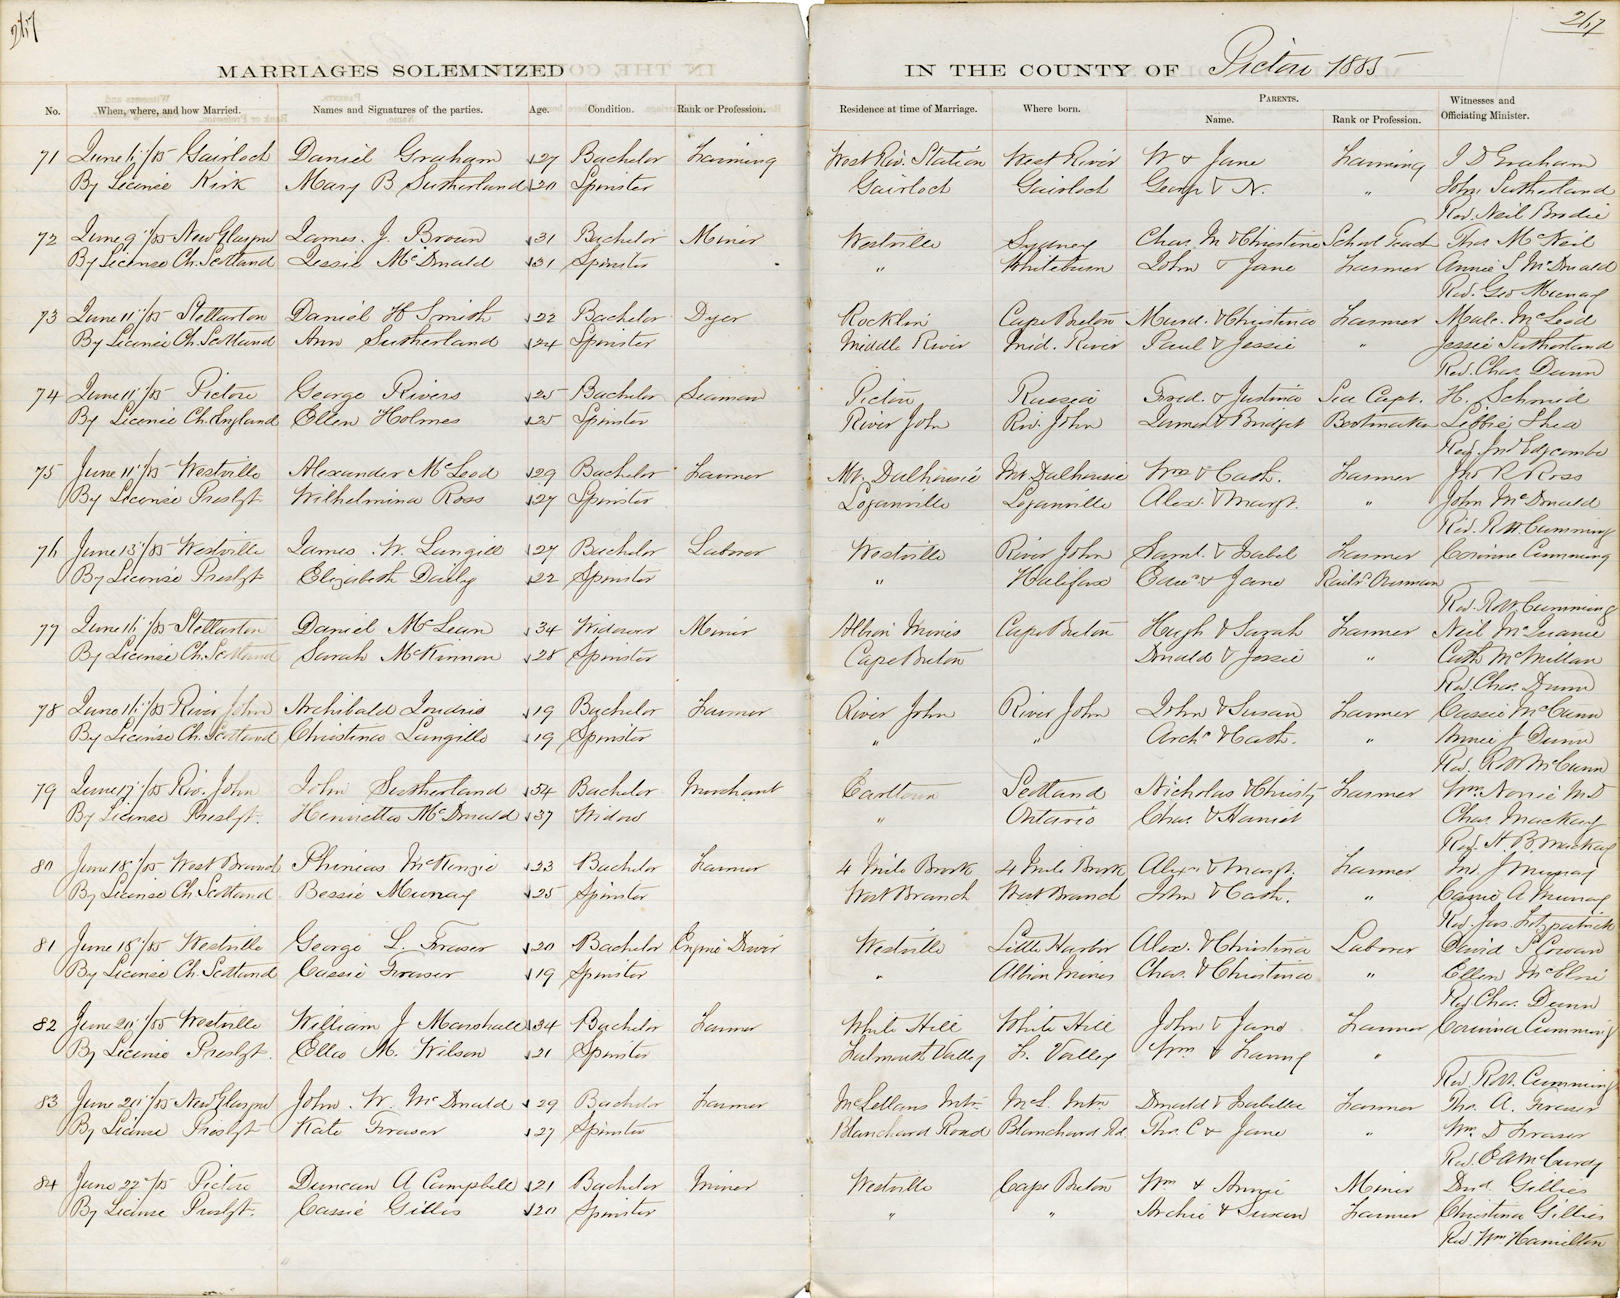 267
267
MARRIAGES SOLEMNIZED IN THE COUNTY OF Pictou 1885
No. When, where, and how Married. Names and Signatures of the parties. Age. Condition. Rank or Profession. Residence at time of Marriage. Where born. PARENTS. Name. Rank or Profession. Witnesses and Officiating Minister.
71 June 6/85 Gairloch Daniel Graham 27 Bachelor Farming West Riv. Station West River W & Jane Farming J D Graham
By License Kirk Mary B Sutherland 20 Spinster Gairloch Gairloch George & N. " John Sutherland
Rev. Neil Brodie
72 June 9/85 New Glasgow James J. Brown 31 Bachelor Miner Westville Sydney Chas. M & Christina School Teach Thos McNeil
By License Ch. Scotland Jessie McDonald 31 Spinster " Whiteburn John & Jane Farmer Annie S McDonald
Rev. Geo Murray
73 June 11/85 Stellarton Daniel H Smith 22 Bachelor Dyer Rocklin Cape Breton Murd. & Christina Farmer Malc. McLeod
By License Ch. Scotland Ann Sutherland 24 Spinster Middle River Mid. River Paul & Jessie " Jessie Sutherland
Rev. Chas. Dunn
74 June 11/85 Pictou George Rivers 25 Bachelor Seaman Pictou Russia Fred. & Justina Sea Capt. H. Schmid
By License Ch. England Ellen Holmes 25 Spinster River John Riv. John James & Bridget Bootmaker Libbie Shea
Rev. Jno Edgcombe
75 June 11/85 Westville Alexander McLeod 29 Bachelor Farmer Mt. Dalhousie Mt Dalhousie Wm & Cath. Farmer Jno R Ross
By License Presbyt. Wilhelmina Ross 27 Spinster Loganville Loganville Alex. & Margt. " John McDonald
Rev. R W Cumming
76 June 13/85 Westville James W. Langill 27 Bachelor Laborer Westville River John Saml. & Isabel Farmer Corinne Cumming
By License Presbyt. Elizabeth Dailey 22 Spinster " Halifax Edwd & Jane
Rev. R W Cumming
77 June 16/85 Stellarton Daniel McLean 34 Widower Miner Albion Mines Cape Breton Hugh & Sarah Farmer Neil McQuarrie
By License Ch. Scotland Sarah McKinnon 28 Spinster Cape Breton Donald & Jessie " Cath McMillan
Rev. Chas. Dunn
78 June 16/85 River John Archibald Joudrie 19 Bachelor Farmer River John River John John & Susan Farmer Cassie McCunn
By License Ch. Scotland Christina Langille 19 Spinster " " Archd & Cath. " Annie J Dunn
Rev. R McCunn
79 June 17/85 Riv. John John Sutherland 54 Bachelor Merchant Earltown Scotland Nicholas & Christy Farmer Wm. Norrie M D
By License Presbyt. Henrietta McDonald 37 Widow " Ontario Chas. & Harriet Chas. MacKay
Rev. H. B. MacKay
80 June 18/85 West Branch Phineas McKenzie 23 Bachelor Farmer 4 Mile Brook 4 Mile Brook Alexr & Margt. Farmer Jno. J Murray
By License Ch Scotland Bessie Murray 25 Spinster West Branch West Branch John & Cath. " Cassie A Murray
Rev. Jas. Fitzpatrick
81 June 18/85 Westville George L. Fraser 20 Bachelor Engine Driver Westville Little Harbor Alex. & Christina Laborer David S Cowan
By License Ch. Scotland Cassie Fraser 19 Spinster " Albion Mines Chas. & Christina " Ellen McElroi
Rev Chas. Dunn
82 June 20/85 Westville William J Marshall 34 Bachelor Farmer White Hill White Hill John & Jane Farmer Corinna Cumming
By License Presbyt. Ella M. Wilson 21 Spinster Falmouth Valley F. Valley Wm & Fanny "
Rev. R W. Cumming
83 June 20/85 New Glasgow John W. McDonald 29 Bachelor Farmer McLellans Mtn. McL. Mtn Donald & Isabella Farmer Tho. A. Fraser
By License Presbyt Kate Fraser 27 Spinster Blanchard Road Blanchard Rd Tho. C & Jane " Wm. D Fraser
Rev. E A McCurdy
84 June 22/85 Pictou Duncan A Campbell 21 Bachelor Miner Westville Cape Breton Wm & Annie Miner Dnd Gillies
By License Presbyt. Cassie Gillis 20 Spinster " " Archie & Susan Farmer Christina Gillies
Rev. Wm Hamilton